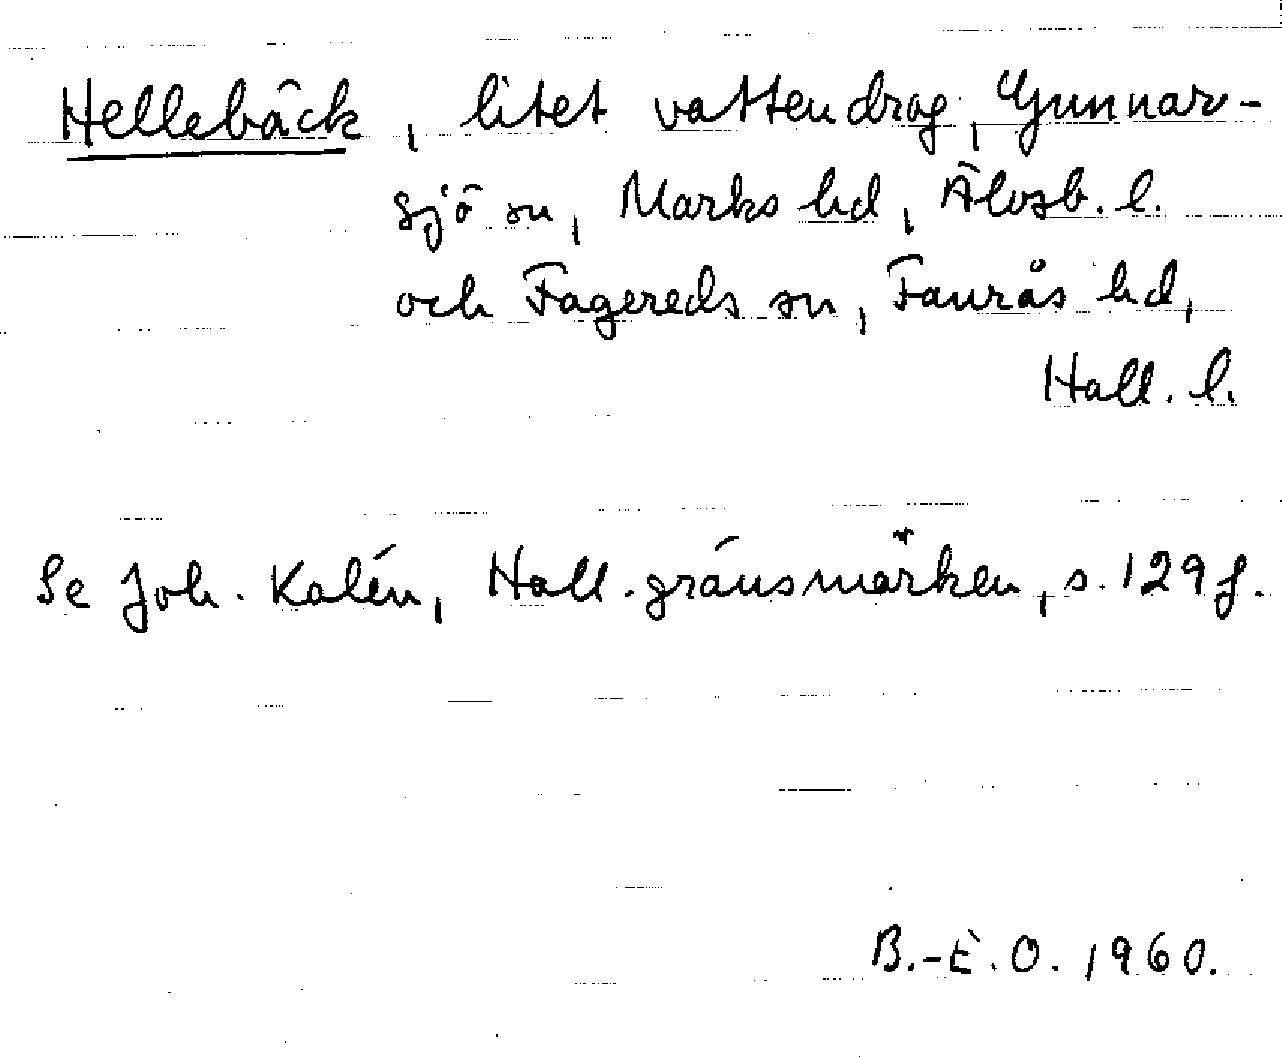 Hellebäck, litet vattendrag, Gunnar-
sjö sn, Marks hd, Älvsb. l.
och Fagereds sn, Faurås hd,
Hall. l.
Se Joh. Kalén, Hall. gränsmärken, s. 129 f.
B.-E. O. 1960.